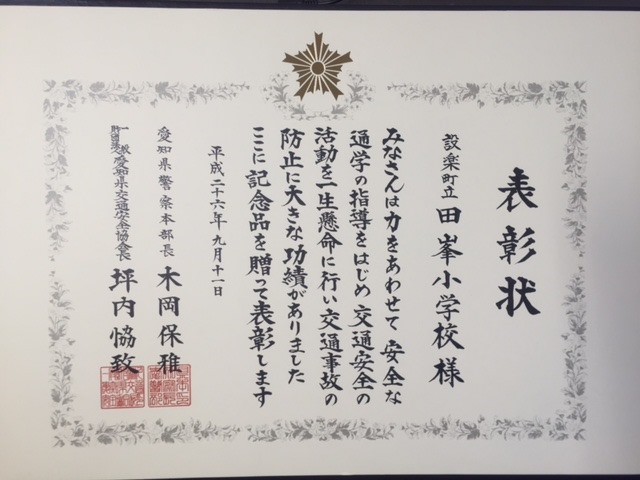 表彰状
設楽町立 田峯小学校 様
みなさんは力をあわせて 安全な
通学の指導をはじめ 交通安全の
活動を一生懸命に行い 交通事故の
防止に大きな功績がありました
ここに 記念品を 贈って表彰します
平成二十六年 九月十一日
愛知県警察本部長 木岡保雅
一般財団法人 愛知県交通安全協会会長 坪内恊致